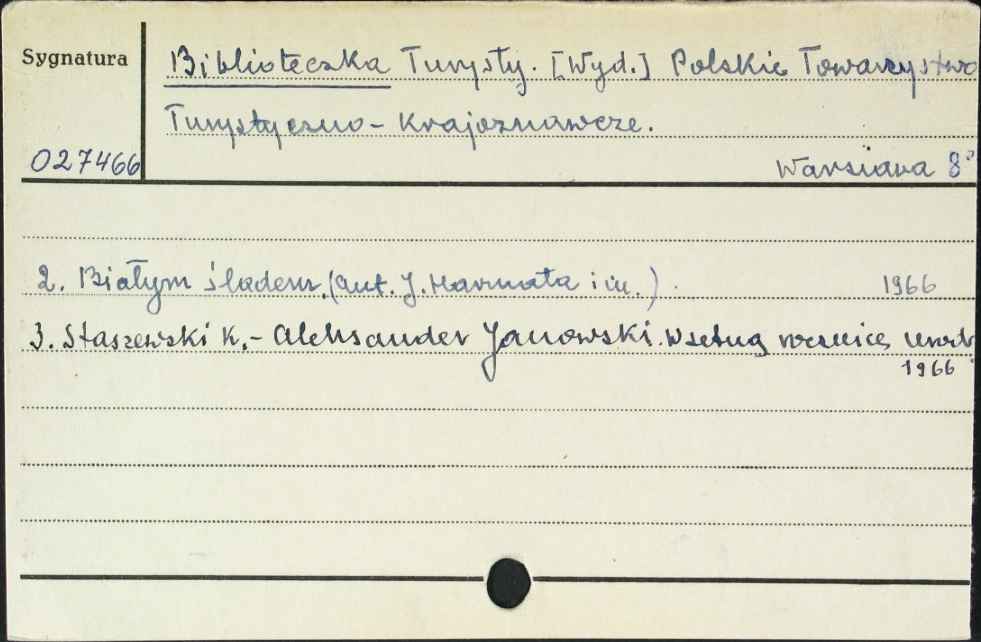 Sygnatura
Biblioteczka Turysty. [Wyd.] Polskie Towarzystwo
Turystyczno-Krajoznawcze.
027466
Warszawa 8°
2. Białym śladem. (Aut. J. Harmata i in.) 1966
3. Staszewski K. - Aleksander Janowski. W setną rocznicę urodz.
1966